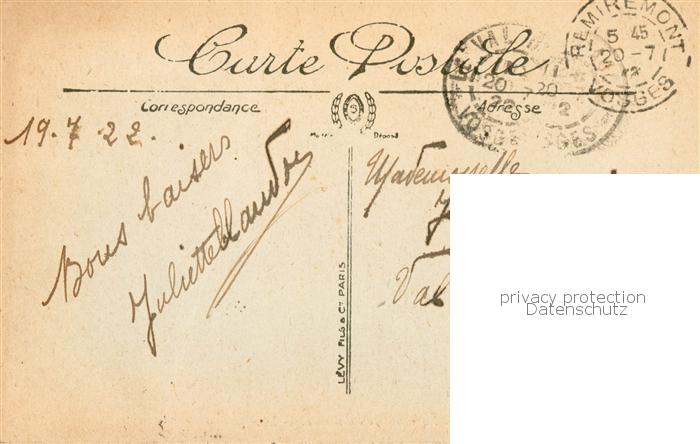 Carte Postale
Correspondance
Adresse
REMIREMONT
5 45
20 - 7
VOSGES
19.7.22.
Bons baisers
Juliette
Mademoiselle
Val
LÉVY FILS & Cie PARIS
privacy protection
Datenschutz